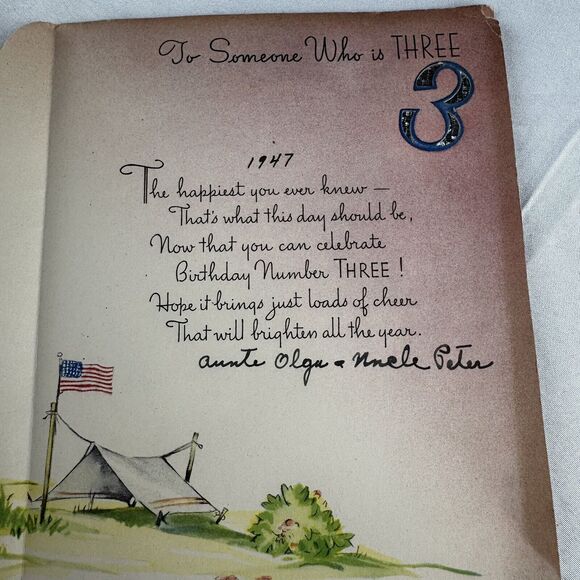 To Someone Who is THREE
3
1947
The happiest you ever knew —
That's what this day should be,
Now that you can celebrate
Birthday Number THREE !
Hope it brings just loads of cheer
That will brighten all the year.
Aunte Olga & Uncle Peter